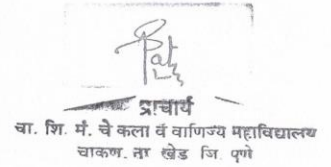 प्राचार्य
चा. शि. मं. चे कला व वाणिज्य महाविद्यालय
चाकण. ता खेड जि पुणे